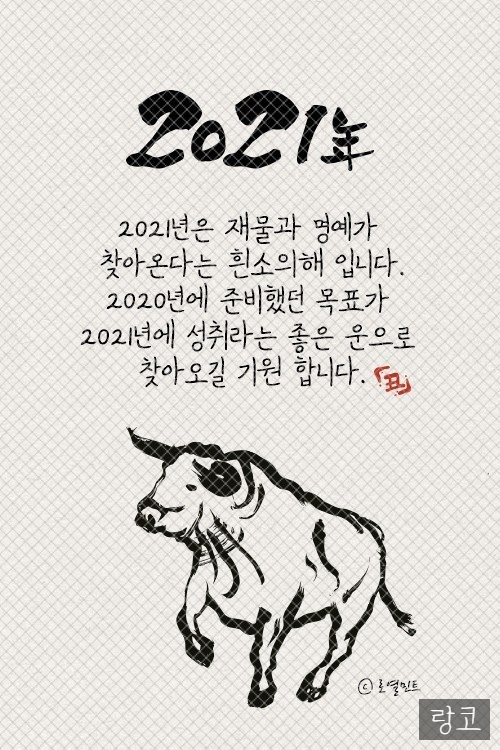 2021年
2021년은 재물과 명예가
찾아온다는 흰소의해 입니다.
2020년에 준비했던 목표가
2021년에 성취라는 좋은 운으로
찾아오길 기원 합니다.
「丑」
ⓒ 로열민트
랑코